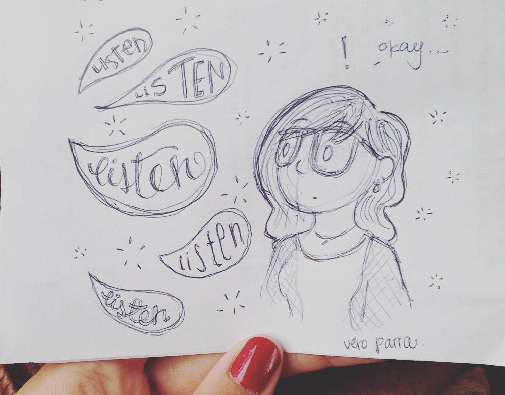 listen
lisTEN
listen
listen
listen
! okay...
vero parra